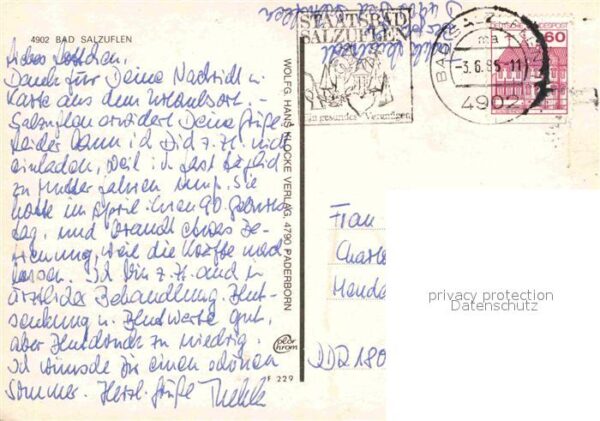 4902 BAD SALZUFLEN
Liebes Lottchen,
Dank für Deine Nachricht u.
Karte aus dem Urlaubsort. -
Salzuflen erwidert Deine Grüße.
Leider kann i. Dich z. Zt. nicht
einladen, weil i. fast täglich
zu Mutter fahren muß. Sie
hatte im April ihren 90. Geburts-
tag, und braucht etwas Be-
treuung, weil die Kräfte nach-
lassen. Ich bin z. Zt. auch in
ärztlicher Behandlung. Blut-
senkung u. Blutwerte gut,
aber Blutdruck zu niedrig.
Ich wünsche Dir einen schönen
Sommer. Herzl. Grüße Thekla
WOLFG. HANS KLOCKE VERLAG, 4790 PADERBORN
color
chrom
F 229
STAATSBAD
SALZUFLEN
Ein gesundes Vergnügen
BAD SALZUFLEN
ma
-3.6.85-11
4902
DEUTSCHE BUNDESPOST
60
Frau
Charl
DDR 180
privacy protection
Datenschutz